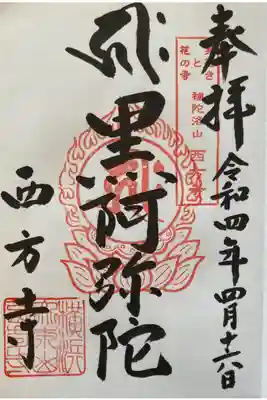 奉拝
令和四年四月十六日
花の寺
補陀洛山 西方寺
黒阿弥陀
西方寺
横浜